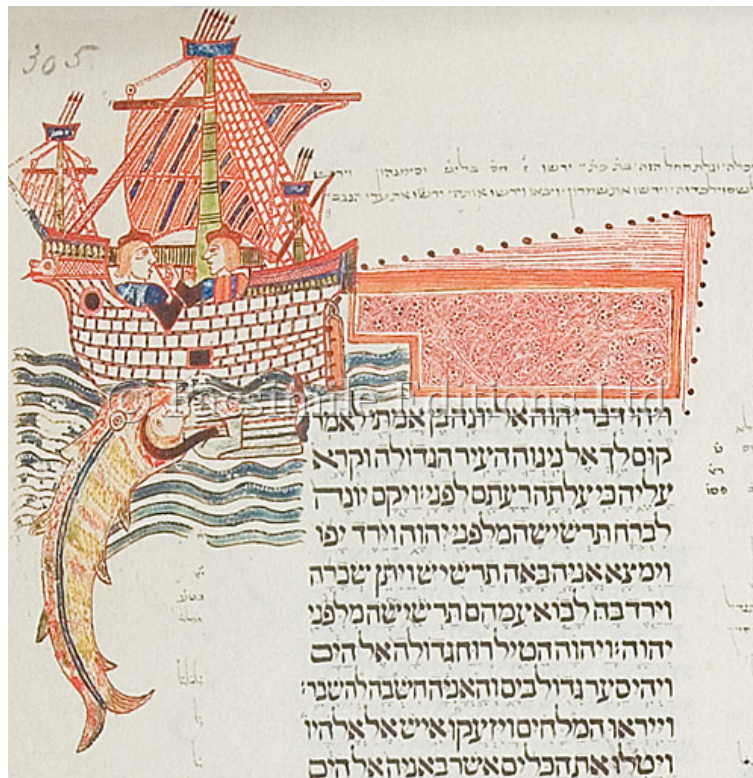 305
ירשו
וירשו את שמרון ויבאו וירשו אותה ירשו את ערי הנגב
© Facsimile Editions Ltd
ויהי דבר יהוה אל יונה בן אמתי לאמר
קום לך אל נינוה העיר הגדולה וקרא
עליה כי עלתה רעתם לפני׃ ויקם יונה
לברח תרשישה מלפני יהוה וירד יפו
וימצא אניה באה תרשיש ויתן שכרה
וירד בה לבוא עמהם תרשישה מלפני
יהוה׃ ויהוה הטיל רוח גדולה אל הים
ויהי סער גדול בים והאניה חשבה להשבר׃
וייראו המלחים ויזעקו איש אל אלהיו
ויטלו את הכלים אשר באניה אל הים